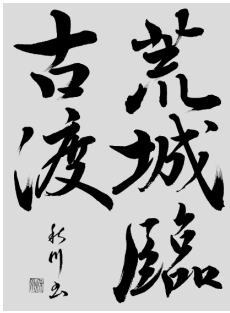 荒城臨
古渡
秋川书